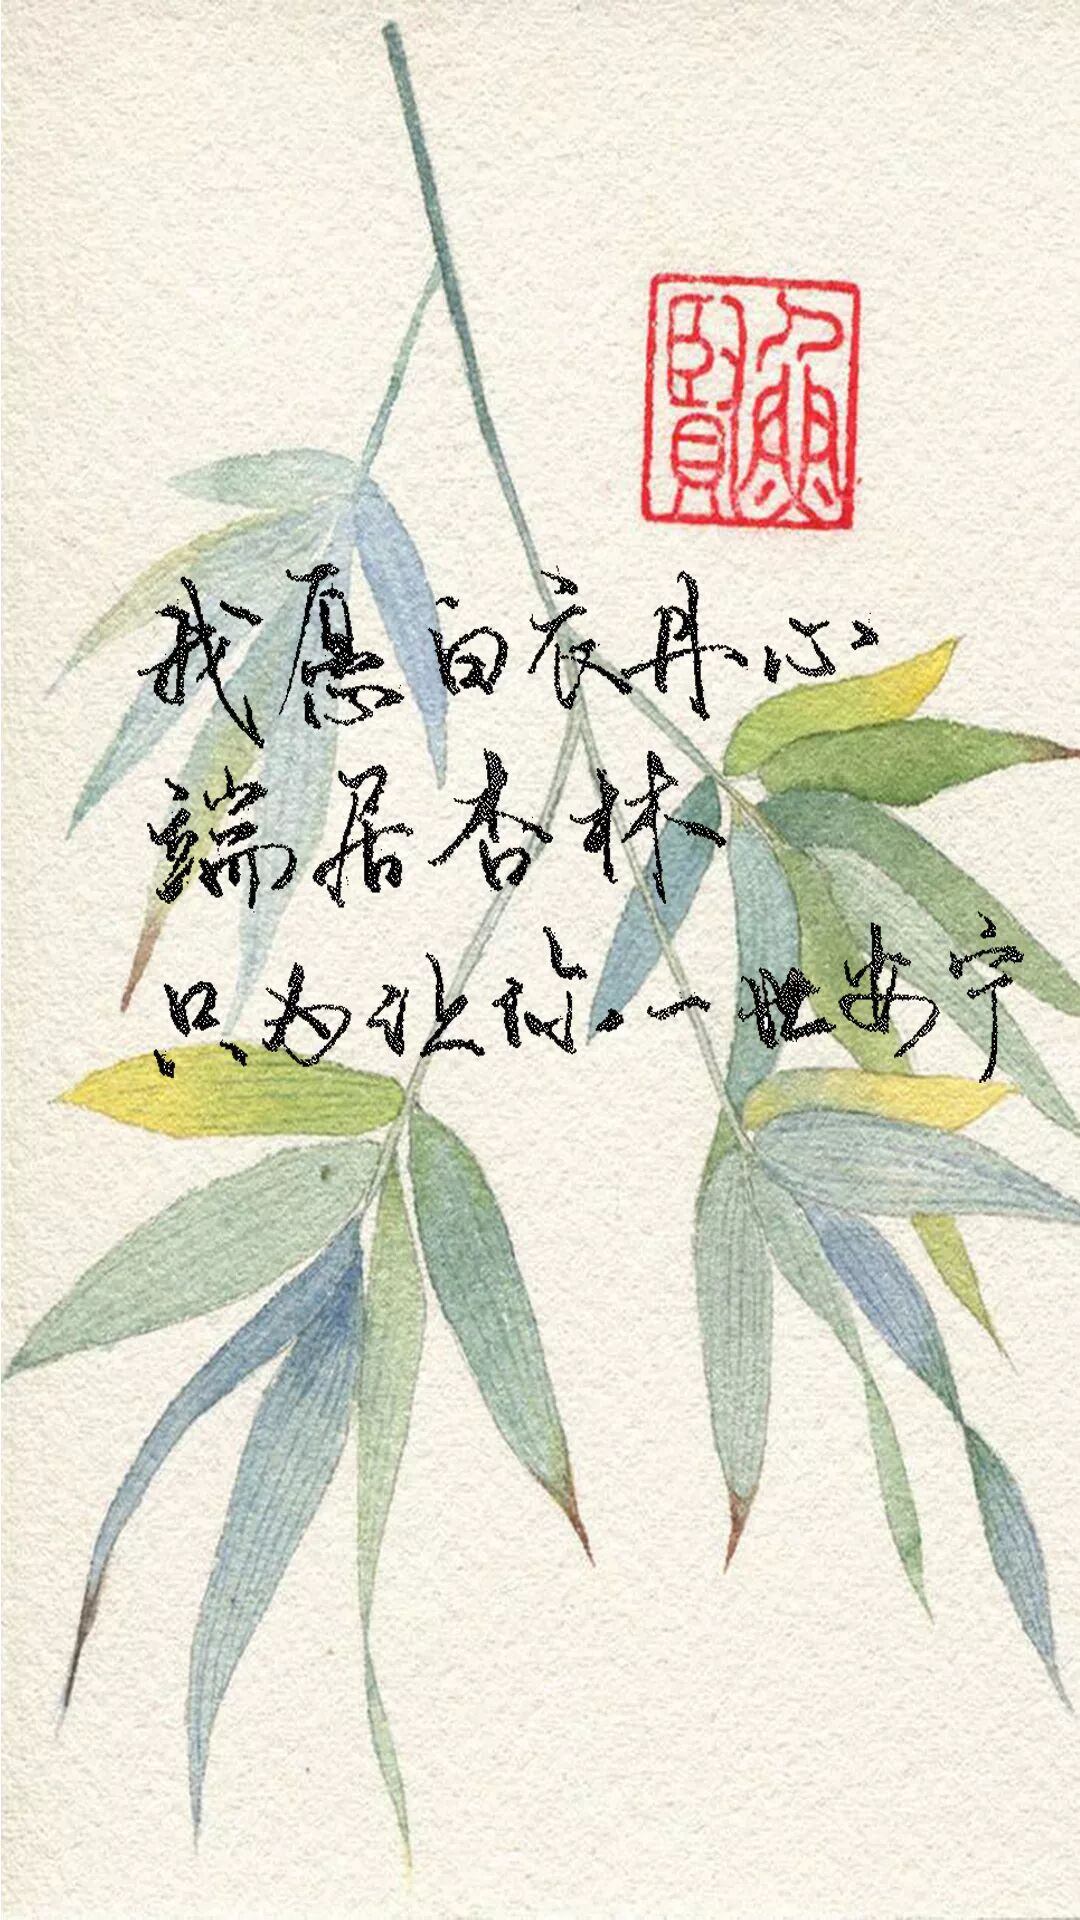 我愿白衣丹心
端居杏林
只为让你一世安宁